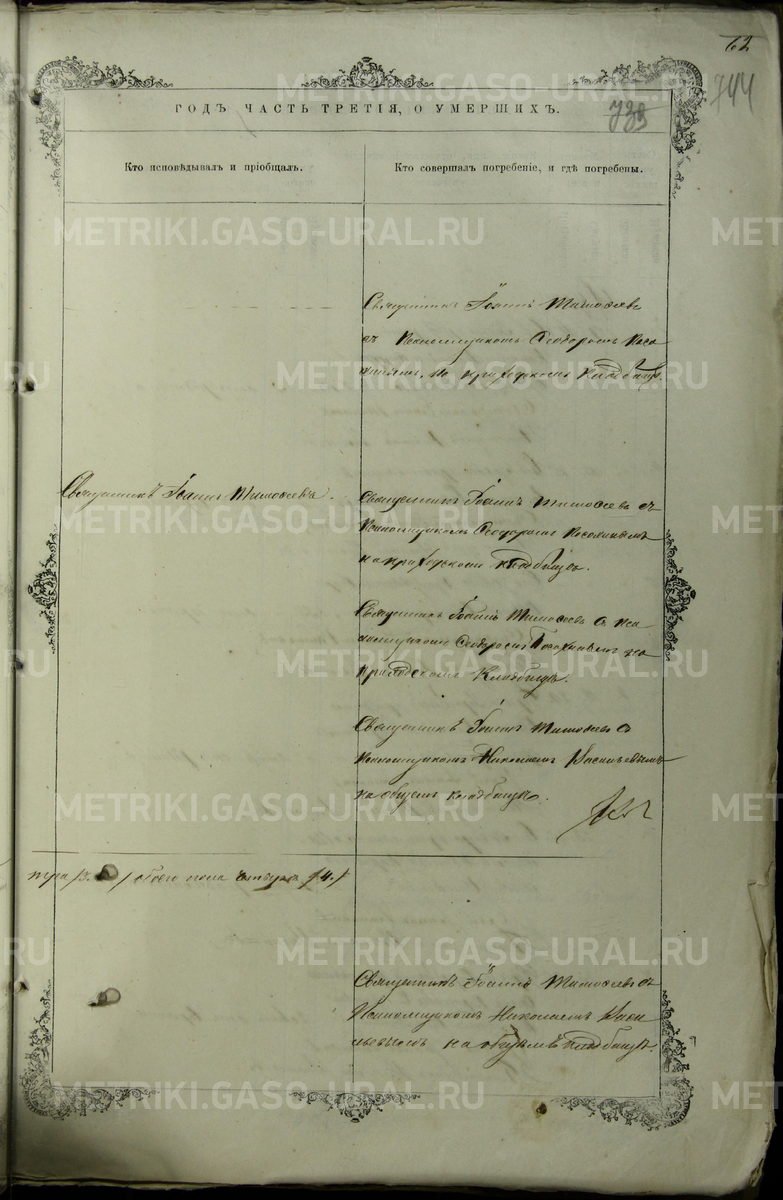 62
744
739
ГОДЪ ЧАСТЬ ТРЕТІЯ, О УМЕРШИХЪ.
Кто исповѣдывалъ и пріобщалъ.
Кто совершалъ погребеніе, и гдѣ погребены.
Священникъ Іоаннъ Тимоѳеевъ
съ Псаломщикомъ Ѳеодоромъ
на приходскомъ кладбищѣ.
Священникъ Іоаннъ Тимоѳеевъ.
Священникъ Іоаннъ Тимоѳеевъ съ
Псаломщикомъ Ѳеодоромъ
на приходскомъ кладбищѣ.
Священникъ Іоаннъ Тимоѳеевъ съ Пса
ломщикомъ Ѳеодоромъ на
приходскомъ кладбищѣ.
Священникъ Іоаннъ Тимоѳеевъ съ
Псаломщикомъ Николаемъ Васильевымъ
на общемъ кладбищѣ.
три /3./ обоего пола четыре /4./
Священникъ Іоаннъ Тимоѳеевъ съ
Псаломщикомъ Николаемъ Васи
льевымъ на общемъ кладбищѣ.
METRIKI.GASO-URAL.RU